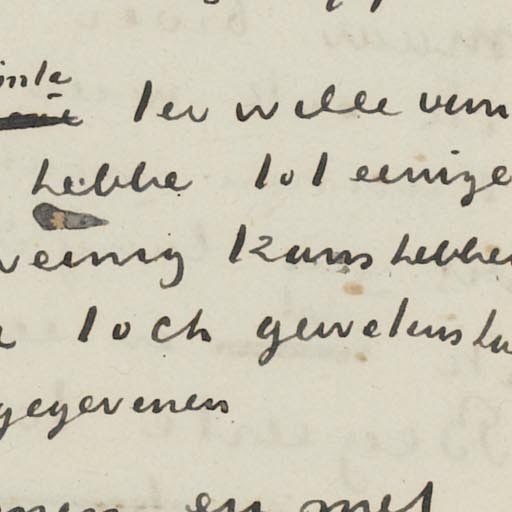 ter wille van
hebbe tot eenige
weinig kans hebben
toch gewetens
gegevenen
en met